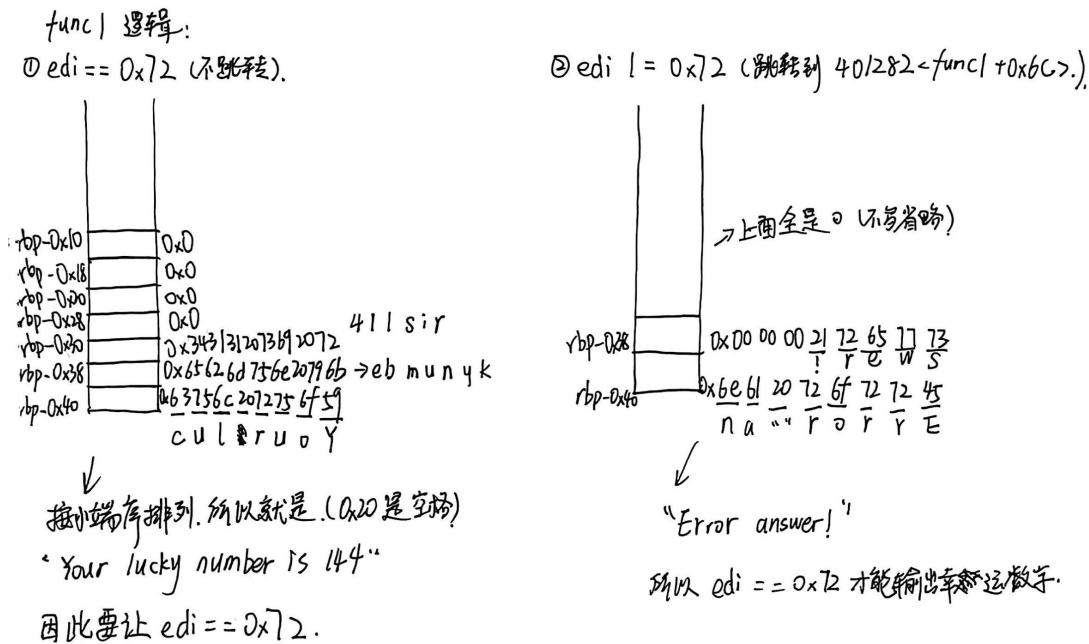 func1 逻辑:
① edi == 0x72 (不跳转).
rbp-0x10 0x0
rbp-0x18 0x0
rbp-0x20 0x0
rbp-0x28 0x0
rbp-0x30 0x3431312073692072 411 sir
rbp-0x38 0x65626d756e20796b → eb mun yk
rbp-0x40 0x63756c2072756f59
c u l r u o Y
按小端序排列, 所以就是. (0x20 是空格)
"Your lucky number is 144"
因此要让 edi == 0x72.
② edi != 0x72 (跳转到 401282<func1+0x6c>.).
→上面全是0 (不多省略)
rbp-0x38 0x00 00 00 21 72 65 77 73
! r e w s
rbp-0x40 0x6e 61 20 72 6f 72 72 45
n a "" r o r r E
"Error answer!"
所以 edi == 0x72 才能输出幸运数字.